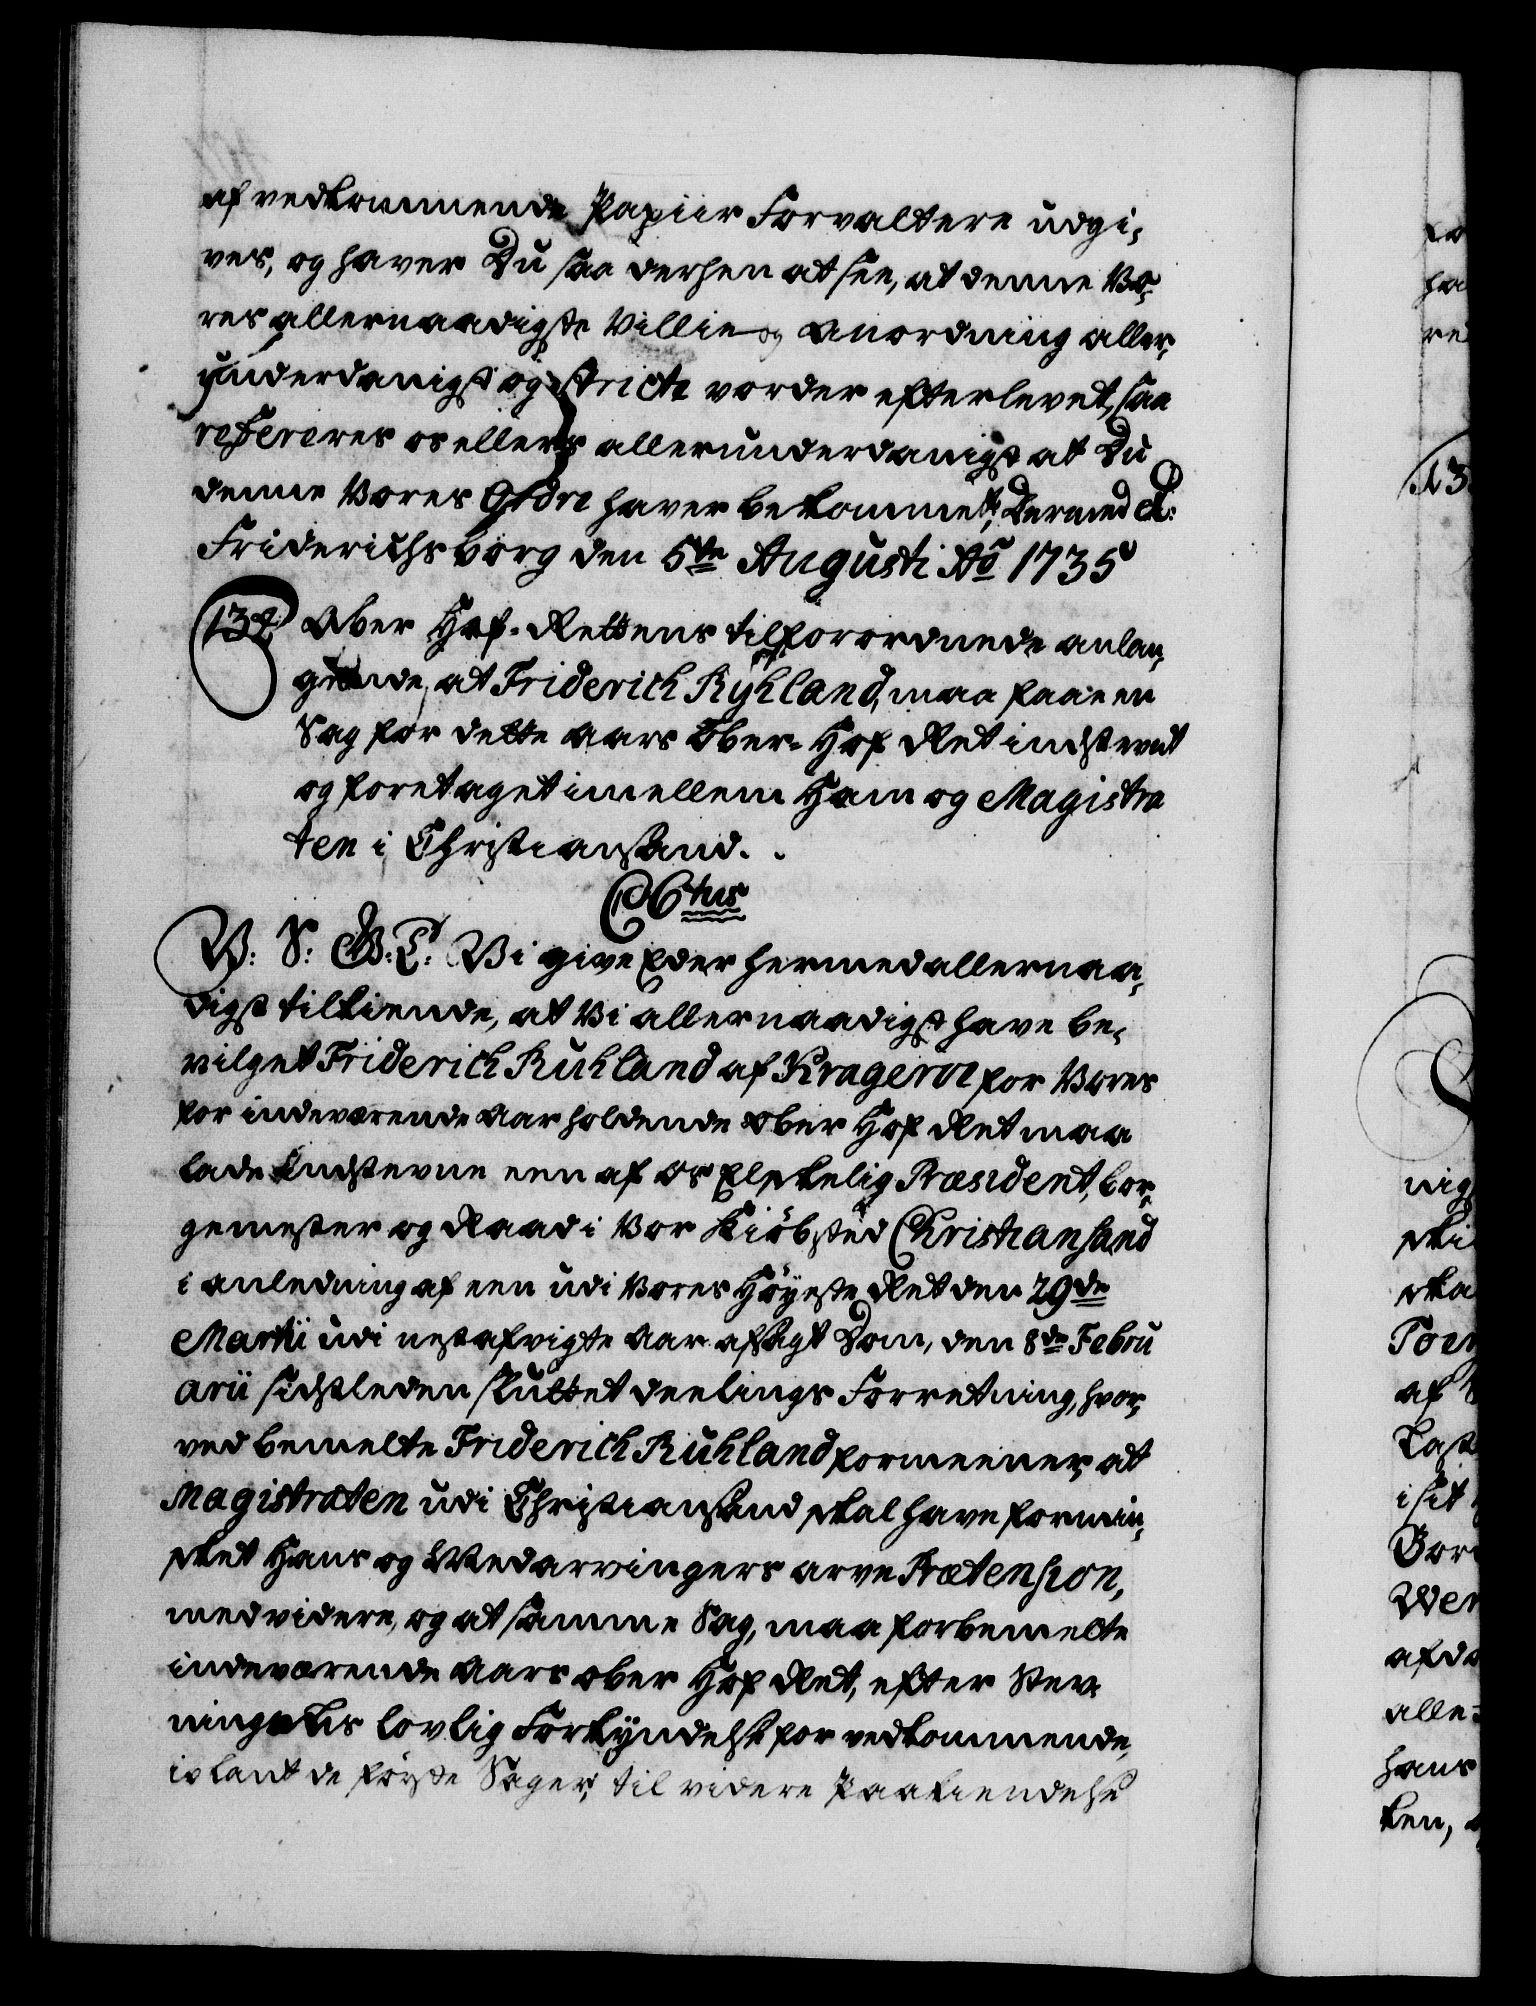 af vedkommende Papiir Forvaltere udgi-
ves, og haver Du saa derhen at see, at denne Vo-
res allernaadigste Villie og Anordning aller-
underdanigst og stricte vorder efterlevet, saa
refereres os ellers allerunderdanigst at Du
denne Vores Ordre haver bekommet, Dermed &:
Friderichsborg den 5te Augusti Ao 1735
132 Ober Hof-Rettens tilforordnede anlan-
gende, at Friderich Ryhland, maa faae en
Sag for dette Aars Ober-Hof Ret indstevnt
og foretaget imellem Ham og Magistra
ten i Christiansand.
C6tus
V: S: G: T: Vi give Eder hermed allernaa-
digst tilkiende, at Vi allernaadigst have be-
vilget Friderich Ruhland af Krageröe for Vores
for indeværende Aar holdende Ober Hof Ret maa
lade Indstevne een af Os Elskelig Præsident, bor-
gemester og Raad i Vor Kiöbsted Christiansand
i anledning af een udi Vores Höyeste Ret den 29de
Martii udi nestafvigte Aar afsagt Dom, den 8de Febru
arii sidstleden sluttet deelings Forretning, hvor-
ved bemelte Friderich Ruhland formeener, at
Magistraten udi Christiansand skal have formin-
sket Hans og Medarvingers arve Prætension,
med videre, og at samme Sag, maa forbemelte
indeværende Aars Ober Hof Ret, efter Stev-
ningens lovlig Forkyndelse for vedkommende,
iblant de förste Sager, til videre Paakiendelse